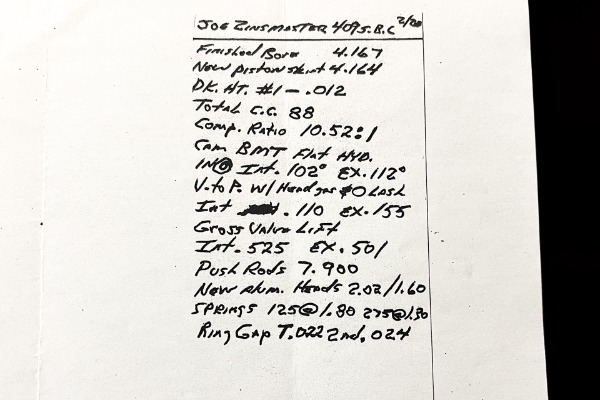 JOE ZINSMASTER 409 S.B.C 2/20
Finished Bore 4.167
New piston skirt 4.164
DK. HT. #1 - .012
Total C.C. 88
Comp. Ratio 10.52:1
Cam BMT Flat HYD.
IN@ Int. 102° EX. 112°
V. to P. W/ Head gas $0 Lash
Int .110 EX. 155
Gross Valve Lift
Int. 525 EX. 501
Push Rods 7.900
New Alum. Heads 2.02/1.60
SPRINGS 125@1.80 275@1.30
Ring Gap T.022 2nd. 024